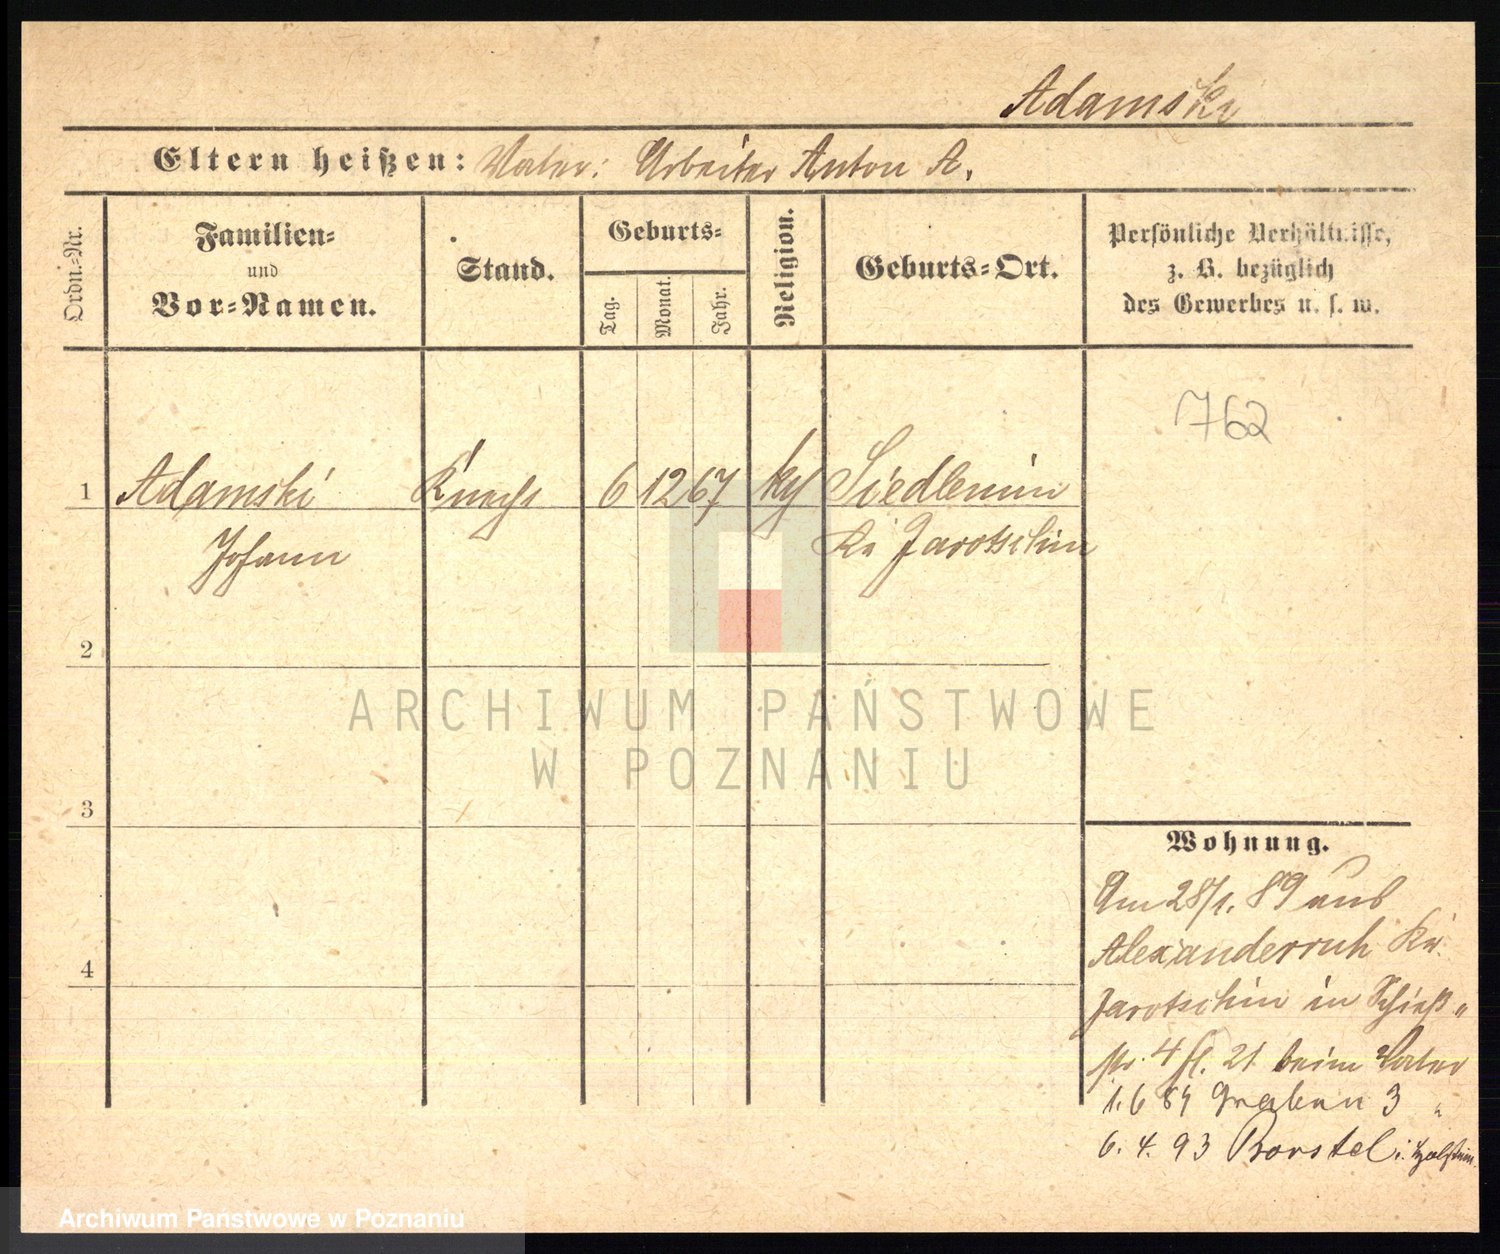 Adamski
Eltern heißen: Vater: Arbeiter Anton A.
Ordn.-Nr.
Familien-
und
Vor-Namen.
Stand.
Geburts-
Tag.
Monat.
Jahr.
Religion.
Geburts-Ort.
Persönliche Verhältnisse,
z. B. bezüglich
des Gewerbes u. s. w.
762
1 Adamski Knecht 6 12 67 Siedlemin
Johann Kr Jarotschin
2
ARCHIWUM PAŃSTWOWE
W POZNANIU
3
4
Wohnung.
Am 28/1. 89 aus
Alexanderruh Kr.
Jarotschin in Schieß-
str. 4 21 beim Vater
1.6 89 Graben 3 "
6. 4. 93 Borstel i. Holstein
Archiwum Państwowe w Poznaniu